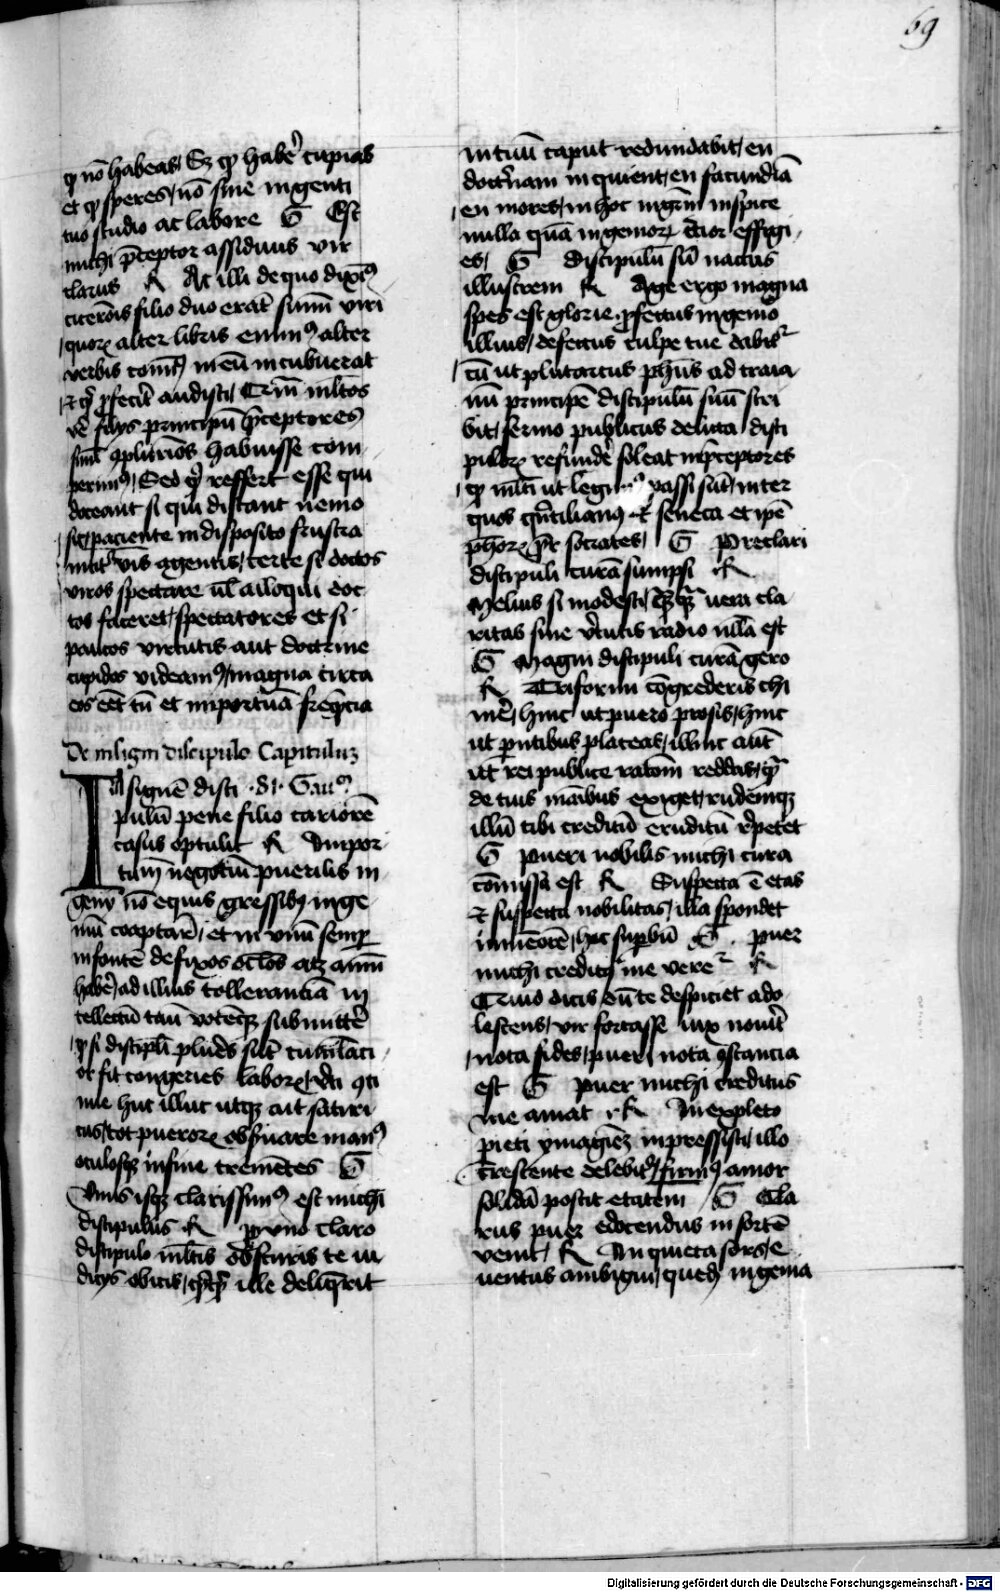 69
qp nō habeas / Sz qp habe᷑ cupias
et qp speres / nō sine ingenti
tuo studio ac labore G Est
michi p̄ceptor assiduus vir
clarus R At illi de quo dixi᷒
cicerōis filio duo erāt sum̄i viri
quoꝝ alter libris eminꝰ alter
verbis comīꝰ in eū incubuerat
et qͥd p̄fecit audisti / Et in multos
ve᷑ filijs principū p̄ceptores
similes plurīos habuisse com
perimꝰ / Sed qͥd reffert esse qui
doceant si qui discant nemo
sit / paciente indisposito frustra
nitit᷑ vis agentis / certe si doctos
viros spectare ul̄ alloqui doc
tos faceret / spectatores et si
paucos virtutis aut doctrine
cupidos videamꝰ / magna circa
eos eēt tn̄ et importūa freq̄ncia
De insigni discipulo Capitulum
Insignē disci ·di· Gauꝰ
pulū pene filio cariorē
casus optulit R Impor
tunū negociū puerilis in
genij nō equis gressibꝫ inge
niū coaptare᷑ / et in vnū semp̱
infantē defixos oc̄los atqꝫ animū
habe᷑ / ad illius tollerantiā in
tellectū tuū vocēqꝫ submitte᷑
qp si discipl̄i plures sūt cumulati
or fit congeries laboꝝ / et cōti
nue huc illuc utqꝫ ait satiri
cus / tot pueroꝝ obseruare manꝰ
oculosqꝫ in fine trementes G
Vnus isqꝫ clarissimꝰ est michi
discipulus R Pro vno claro
discipulo ml̄tis obscuris te iu
dicijs obicis / quicqd ille deliq̄rit
in tuū caput redundabit / en
doctrinam inquient / en facundiā
en mores / in hoc mgr̄m inspice
nulla qͣm ingenioꝝ c̄cior effigi
es / G Discipulū sū nactus
illustrem R Age ergo magna
spes est glorie profectus ingenio
illius / defectus culpe tue dabit᷑
cū ut plutarcus ph̄us ad traia
nū principē discipulū suū scri
bit / sermo publicus delicta disci
puloꝝ refunde᷑ soleat in p̄ceptores
qp ml̄ti ut legimꝰ passi sūt / inter
quos qn̄tilianꝰ et seneca et ipē
ph̄oꝝ pr̄ socrates / G Preclari
discipuli curā sumpsi R
Melius si modesti / qꝫqꝫ vera cla
ritas sine v̄tutis radio nulla est
G Magni discipuli curā gero
R Triformi cōgrederis chi
mere / hinc ut puero prosis / hinc
ut parētibus placeas / illinc aūt
ut rei publice ratōm reddas / qͣ
de tuis manibus exiget / rudemqꝫ
illū tibi creditū eruditū r̄petet
G Pueri nobilis michi cura
cōmissa est R Suspecta ē etas
et suspecta nobilitas / illa spondet
inmemorē / hec supbū G Puer
michi creditꝰ me veret᷑ R
Cito dicis / dū te despiciet ado
lescens / vir fortasse vix nouit
nota fides / pueri nota cōstancia
est G Puer michi creditus
me amat R In expleto
pieti ymaginē inpressisti / illo
crescente delebit᷑ / firmꝰ amor
solidā poscit etatem / G Cla
rus puer edocendus in sortē
venit / R Inquieta sors / e
uentus ambigui / quedā ingenia
Digitalisierung gefördert durch die Deutsche Forschungsgemeinschaft - DFG